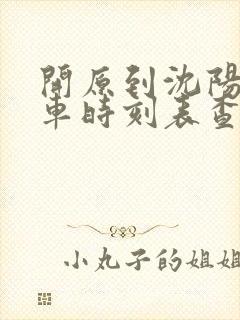 開原到沈陽
車時刻表查
小丸子的姐姐